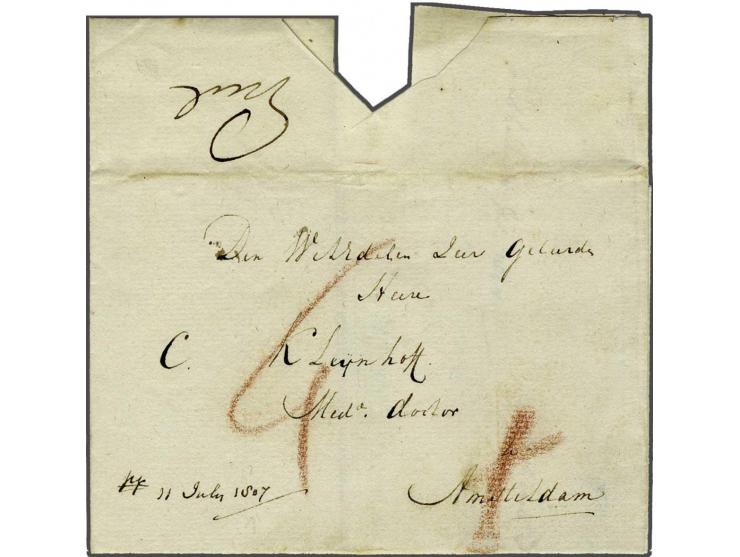 Den WelEdelen Zeer Geleerde
Heere
C. Kleynhoff.
Med. doctor
Amsteldam
11 July 1807